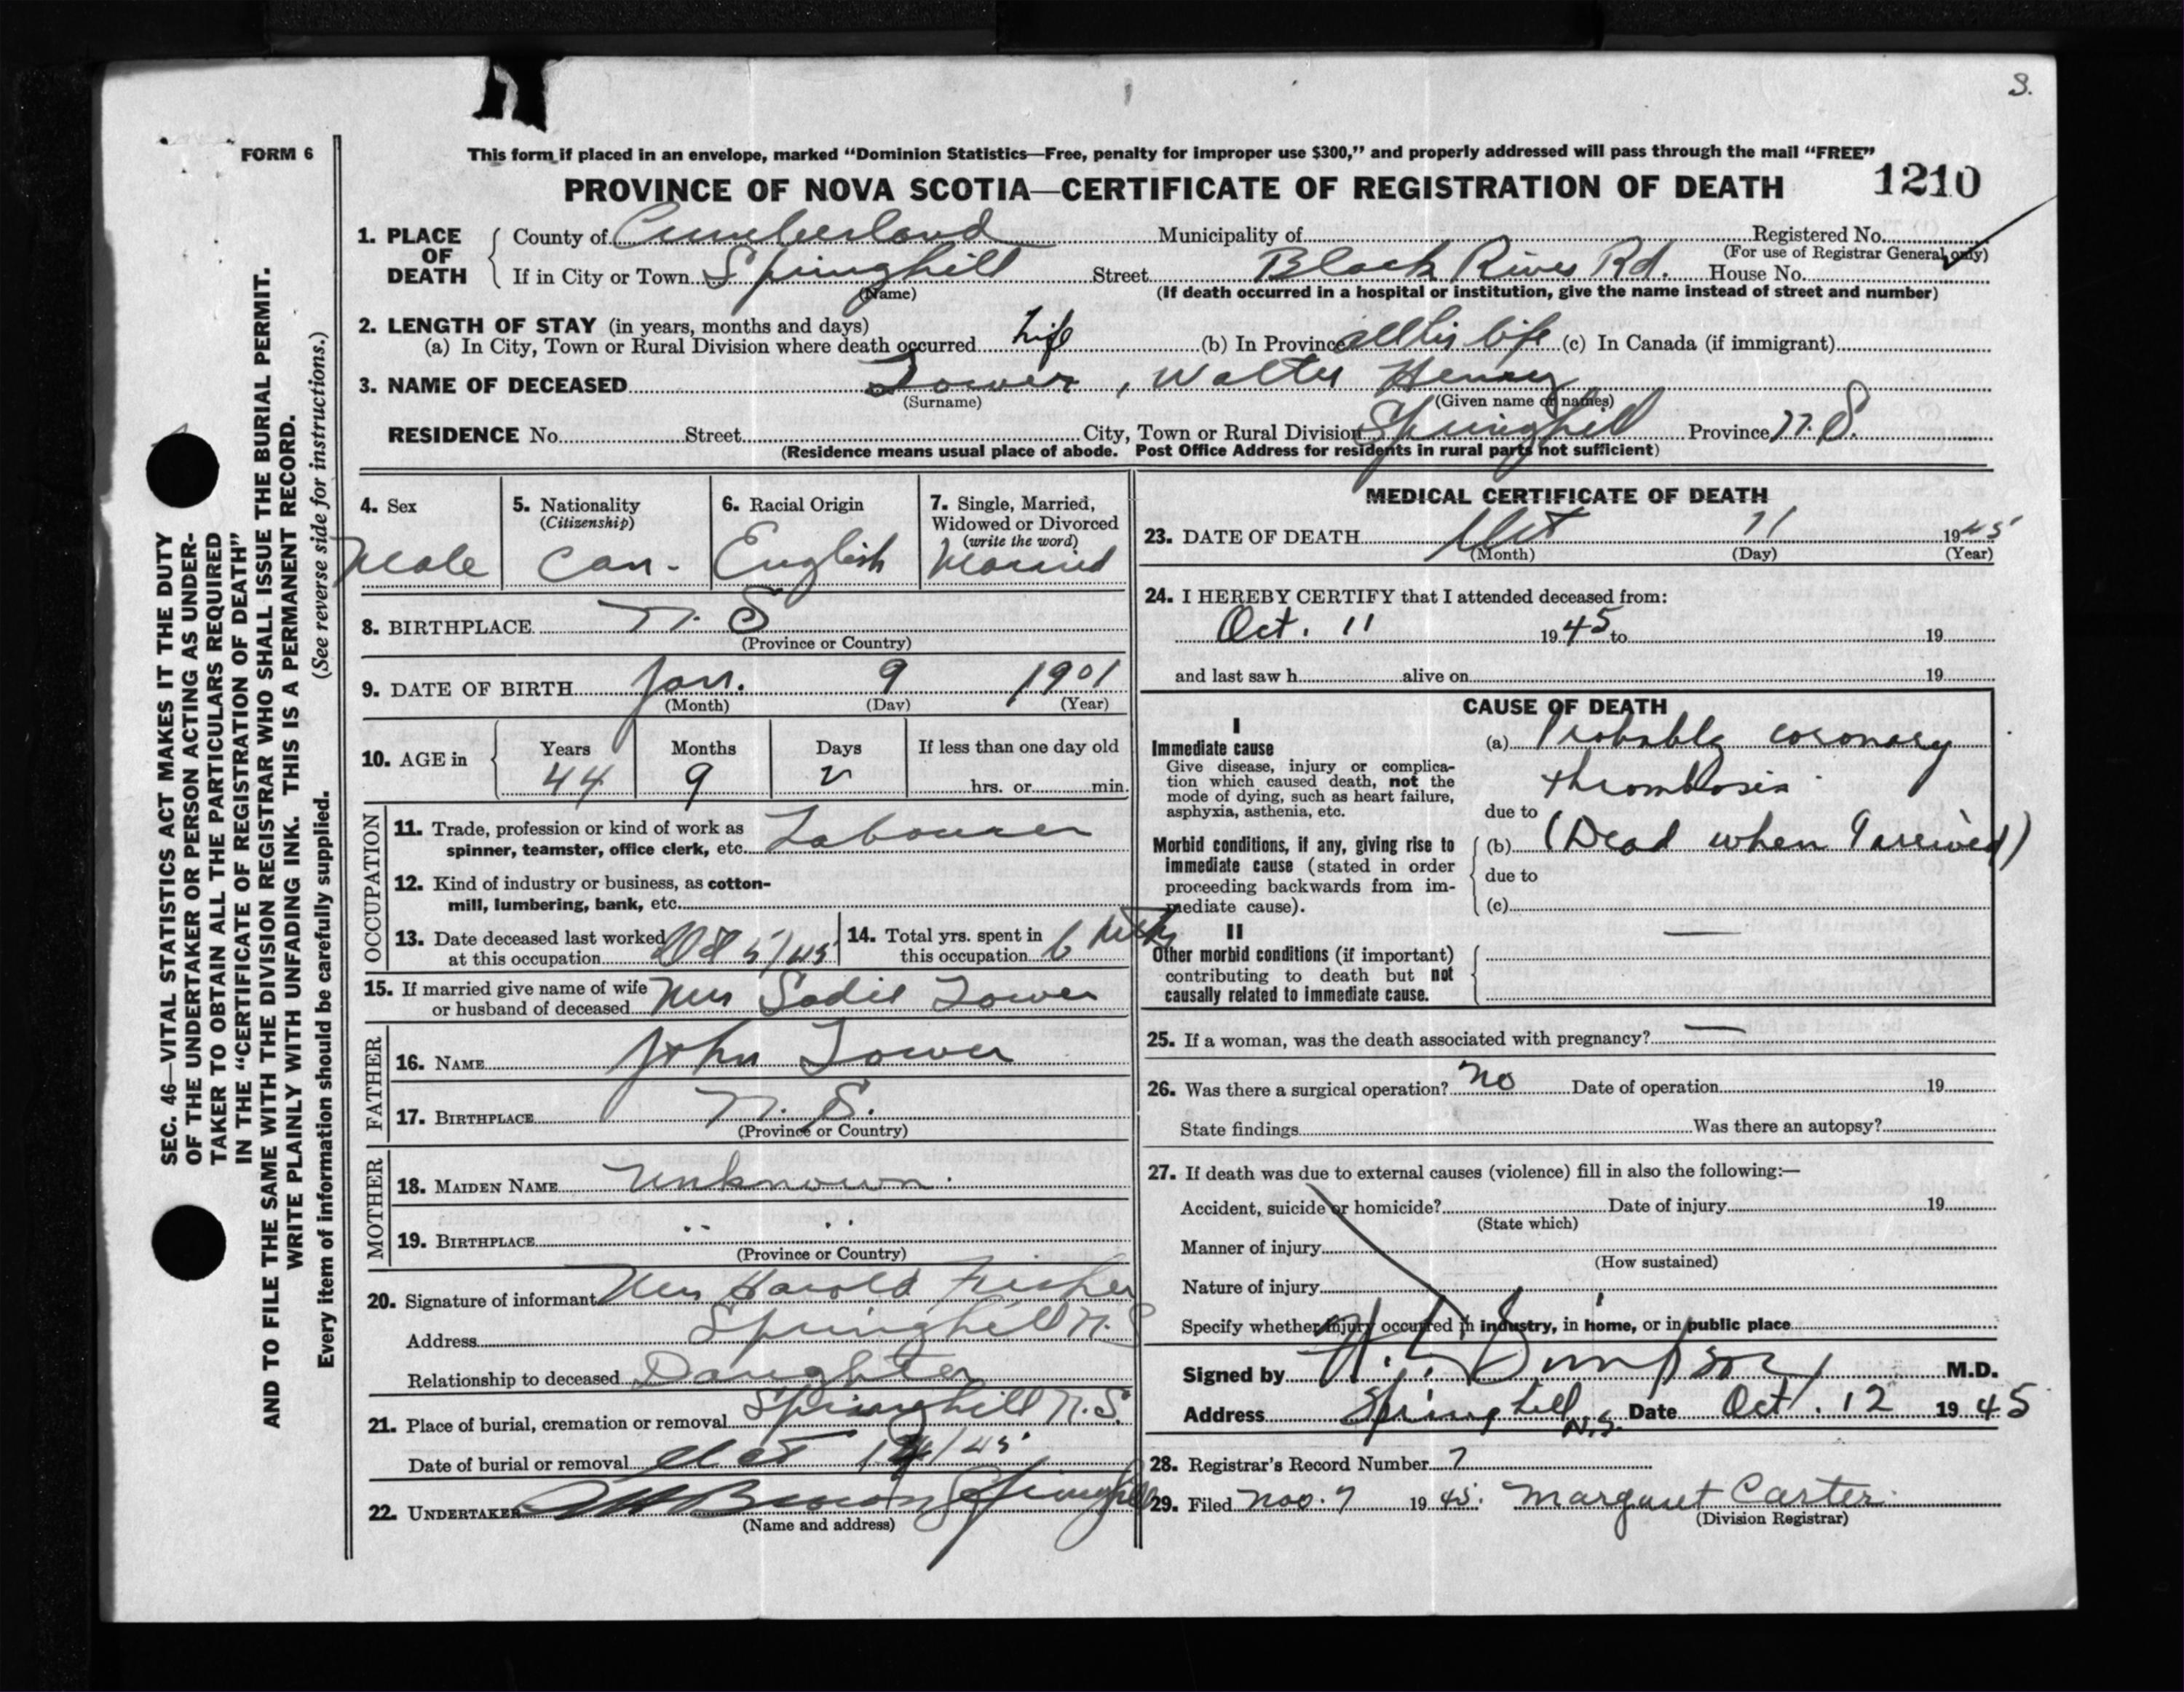 3.
FORM 6
This form if placed in an envelope, marked “Dominion Statistics—Free, penalty for improper use $300,” and properly addressed will pass through the mail “FREE”
PROVINCE OF NOVA SCOTIA—CERTIFICATE OF REGISTRATION OF DEATH 1210
SEC. 46—VITAL STATISTICS ACT MAKES IT THE DUTY
OF THE UNDERTAKER OR PERSON ACTING AS UNDER-
TAKER TO OBTAIN ALL THE PARTICULARS REQUIRED
IN THE “CERTIFICATE OF REGISTRATION OF DEATH”
AND TO FILE THE SAME WITH THE DIVISION REGISTRAR WHO SHALL ISSUE THE BURIAL PERMIT.
WRITE PLAINLY WITH UNFADING INK. THIS IS A PERMANENT RECORD.
Every item of information should be carefully supplied. (See reverse side for instructions.)
1. PLACE OF DEATH County of Cumberland Municipality of Registered No.
(For use of Registrar General only)
If in City or Town Springhill Street Black River Rd. House No.
(Name) (If death occurred in a hospital or institution, give the name instead of street and number)
2. LENGTH OF STAY (in years, months and days)
(a) In City, Town or Rural Division where death occurred life (b) In Province all his life (c) In Canada (if immigrant)
3. NAME OF DECEASED Tower, Walter Henry
(Surname) (Given name or names)
RESIDENCE No. Street City, Town or Rural Division Springhill Province N.S.
(Residence means usual place of abode. Post Office Address for residents in rural parts not sufficient)
4. Sex Male
5. Nationality (Citizenship) Can.
6. Racial Origin English
7. Single, Married, Widowed or Divorced (write the word) Married
8. BIRTHPLACE N.S
(Province or Country)
9. DATE OF BIRTH Jan. 9 1901
(Month) (Day) (Year)
10. AGE in Years Months Days If less than one day old
44 9 2 hrs. or min.
OCCUPATION
11. Trade, profession or kind of work as
spinner, teamster, office clerk, etc. Labourer
12. Kind of industry or business, as cotton-
mill, lumbering, bank, etc.
13. Date deceased last worked
at this occupation Oct 5/45
14. Total yrs. spent in
this occupation 6
15. If married give name of wife
or husband of deceased Mrs Sadie Tower
FATHER
16. NAME John Tower
17. BIRTHPLACE N.S.
(Province or Country)
MOTHER
18. MAIDEN NAME Unknown
19. BIRTHPLACE " "
(Province or Country)
20. Signature of informant Mrs Harold Fisher
Address Springhill N.S
Relationship to deceased Daughter
21. Place of burial, cremation or removal Springhill N.S.
Date of burial or removal Oct 14/45
22. UNDERTAKER Brown Springhill
(Name and address)
MEDICAL CERTIFICATE OF DEATH
23. DATE OF DEATH Oct 11 1945
(Month) (Day) (Year)
24. I HEREBY CERTIFY that I attended deceased from:
Oct. 11 1945 to 19
and last saw h alive on 19
CAUSE OF DEATH
I
Immediate cause
Give disease, injury or complica-
tion which caused death, not the
mode of dying, such as heart failure,
asphyxia, asthenia, etc.
(a) Probably coronary
thrombosis
due to
Morbid conditions, if any, giving rise to
immediate cause (stated in order
proceeding backwards from im-
mediate cause).
(b) (Dead when I arrived)
due to
(c)
II
Other morbid conditions (if important)
contributing to death but not
causally related to immediate cause.
25. If a woman, was the death associated with pregnancy? —
26. Was there a surgical operation? no Date of operation 19
State findings Was there an autopsy?
27. If death was due to external causes (violence) fill in also the following:—
Accident, suicide or homicide? Date of injury 19
(State which)
Manner of injury
(How sustained)
Nature of injury
Specify whether injury occurred in industry, in home, or in public place
Signed by Simpson M.D.
Address Springhill N.S. Date Oct. 12 1945
28. Registrar's Record Number 7
29. Filed Nov. 7 1945. Margaret Carter
(Division Registrar)